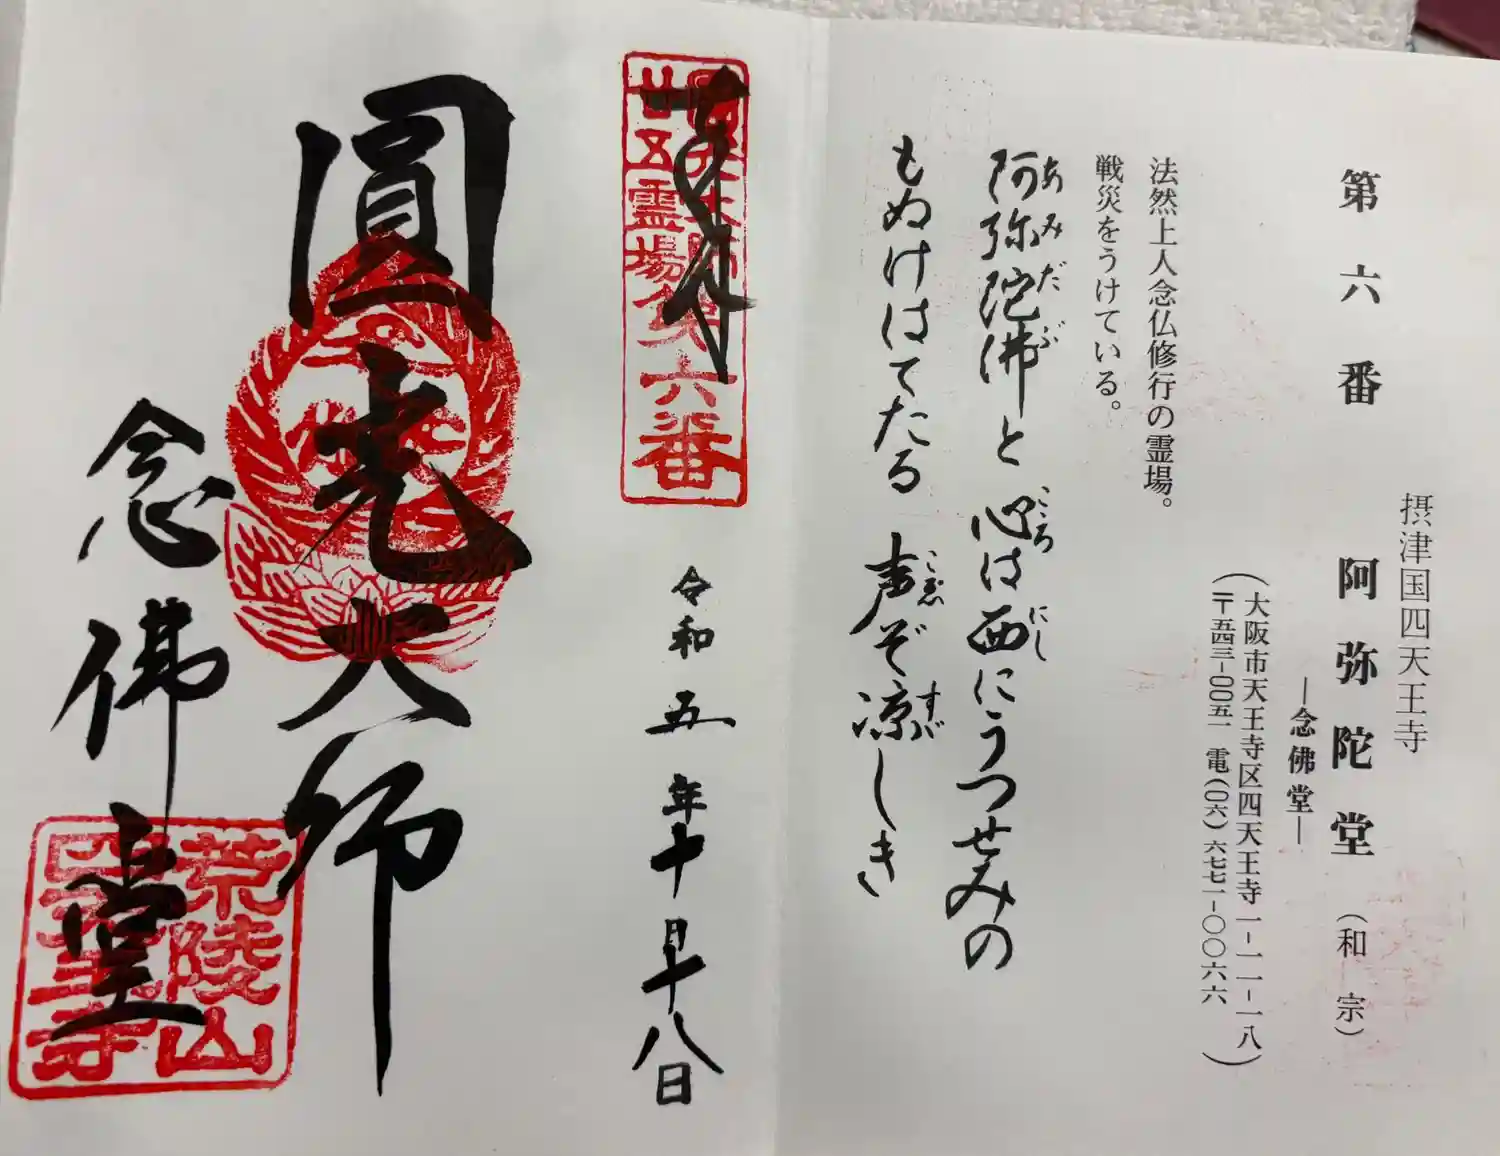 摂津国四天王寺
第六番 阿弥陀堂（和宗）
―念佛堂―
（大阪市天王寺区四天王寺一-一一-一八）
（〒五四三-〇〇五一 電(〇六)六七七一-〇〇六六）
法然上人念仏修行の霊場。
戦災をうけている。
あみだぶ こころ にし
阿弥陀佛と心は西にうつせみの
もぬけはてたる声ぞ凉しき
廿五霊場第六番
令和五年十月十八日
圓光大師
念佛堂
荒陵山
四天王寺